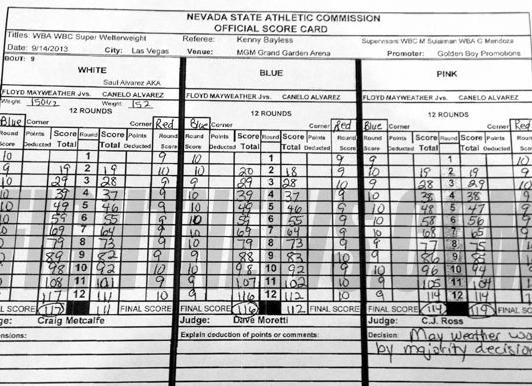 NEVADA STATE ATHLETIC COMMISSION
OFFICIAL SCORE CARD
Titles: WBA WBC Super Welterweight Referee: Kenny Bayless Supervisors WBC M Sulaiman WBA C Mendoza
Date: 9/14/2013 City: Las Vegas Venue: MGM Grand Garden Arena Promoter: Golden Boy Promotions
BOUT: 9
WHITE BLUE PINK
Saul Alvarez AKA
FLOYD MAYWEATHER Jvs. CANELO ALVAREZ FLOYD MAYWEATHER Jvs. CANELO ALVAREZ FLOYD MAYWEATHER Jvs. CANELO ALVAREZ
Weight 150 1/2 Weight: 152
12 ROUNDS 12 ROUNDS 12 ROUNDS
Blue Corner Corner Red Blue Corner Corner Red Blue Corner Corner Red
Round Points Score Round Score Points Round Round Points Score Round Score Points Round Round Points Score Round Score Points
Score Deducted Total Total Deducted Score Score Deducted Total Total Deducted Score Score Deducted Total Total Deducted
10 1 9 10 1 9 9 1
9 19 2 19 10 10 20 2 18 9 10 19 2 19
10 29 3 28 9 9 29 3 28 10 9 28 3 29
10 39 4 37 9 10 39 4 37 9 10 38 4 38
10 49 5 46 9 10 49 5 46 9 10 48 5 47
10 59 6 55 9 10 59 6 55 9 10 58 6 56
10 69 7 64 9 10 69 7 64 9 10 68 7 65
10 79 8 73 9 10 79 8 73 9 9 77 8 75
10 89 9 82 9 9 88 9 83 10 9 86 9 85
9 98 10 92 10 10 98 10 92 9 10 96 10 94
10 108 11 101 9 9 107 11 102 10 9 105 11 104
9 117 12 111 10 9 116 12 112 10 9 114 12 114
FINAL SCORE 117 111 FINAL SCORE FINAL SCORE 116 112 FINAL SCORE FINAL SCORE 114 114
Judge: Craig Metcalfe Judge: Dave Moretti Judge: C.J. Ross
Explain deduction of points or comments: Decision: Mayweather won
by majority decision